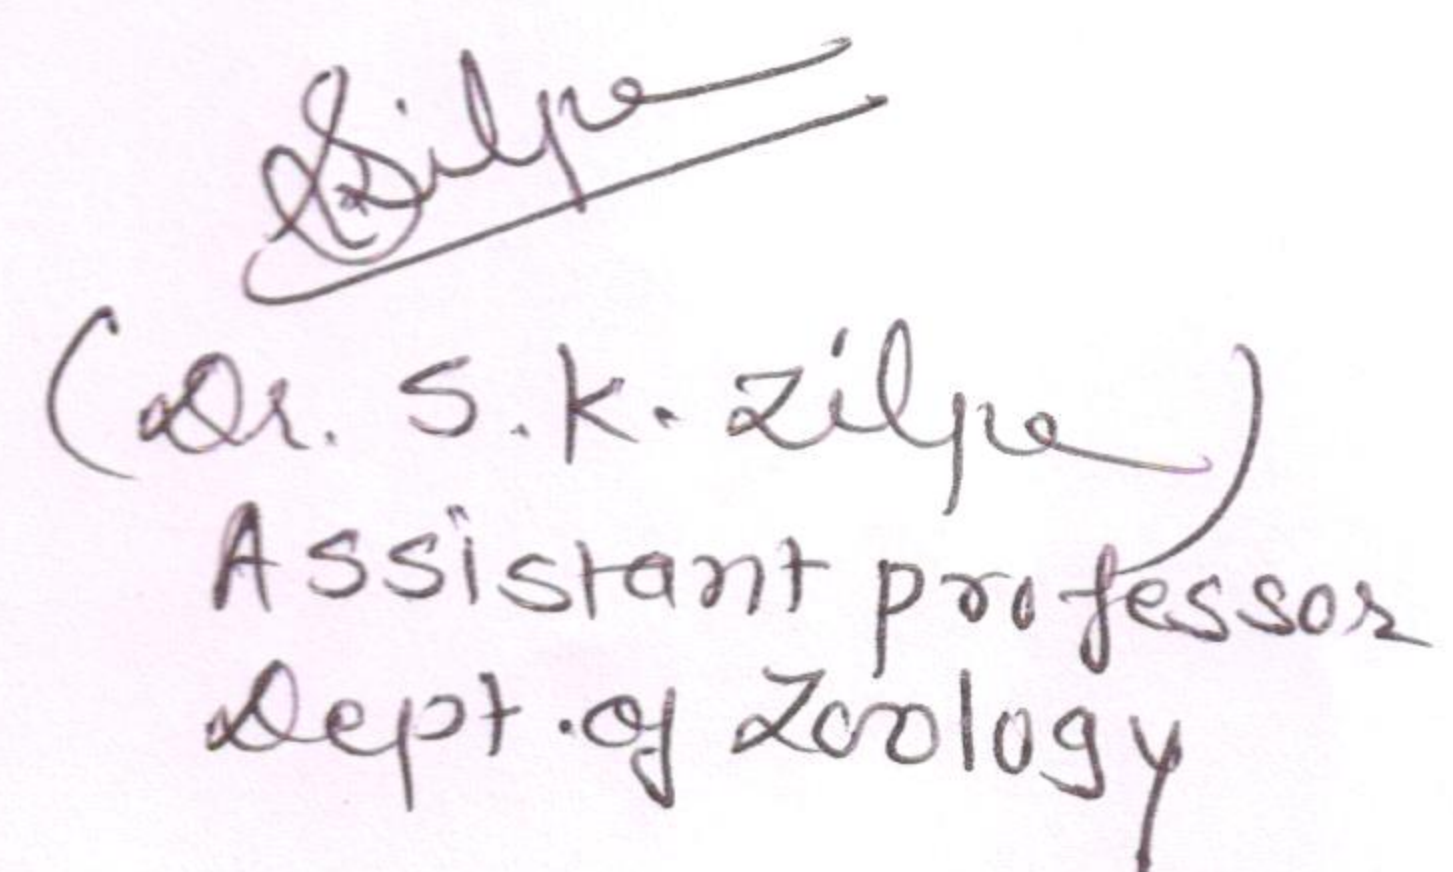 Szilpe
(Dr. S. K. Zilpe)
Assistant professor
Dept. of Zoology